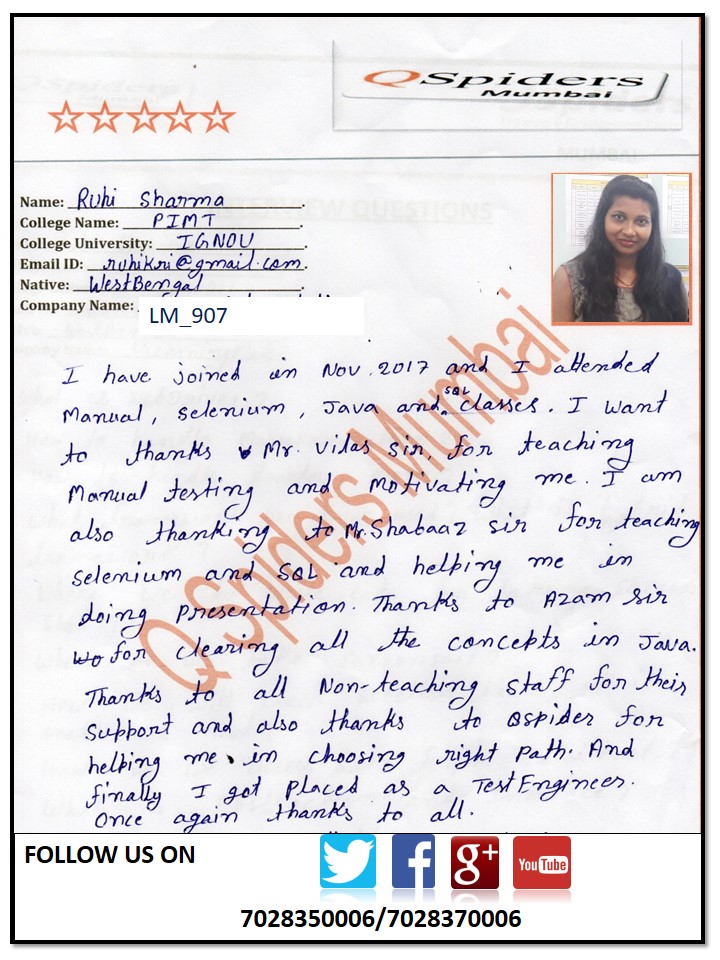 QSpiders
Mumbai
Name: Ruhi Sharma
College Name: PIMT
College University: IGNOU
Email ID: ruhikri@gmail.com
Native: WestBengal
Company Name:
LM_907
I have joined in Nov.2017 and I attended
Manual, selenium, Java and SQL classes. I want
to thanks Mr. Vilas sir, for teaching
Manual testing and motivating me. I am
also thanking to Mr.Shabaaz sir for teaching
selenium and SQL and helping me in
doing Presentation. Thanks to Azam sir
for clearing all the concepts in Java.
Thanks to all Non-teaching staff for their
Support and also thanks to Qspider for
helping me in choosing right path. And
finally I got placed as a Test Engineer.
Once again thanks to all.
Q Spiders Mumbai
FOLLOW US ON
You Tube
7028350006/7028370006